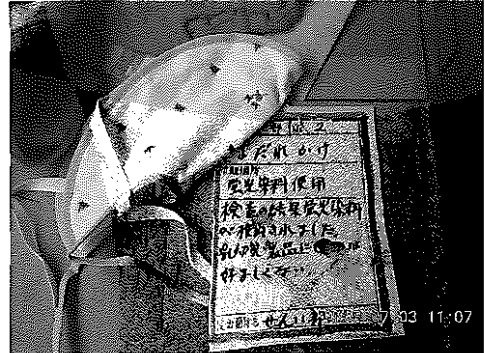 よだれかけ
蛍光染料使用
検査の結果蛍光染料
が検出されました。
乳幼児製品に
好ましくない。
03 11:07